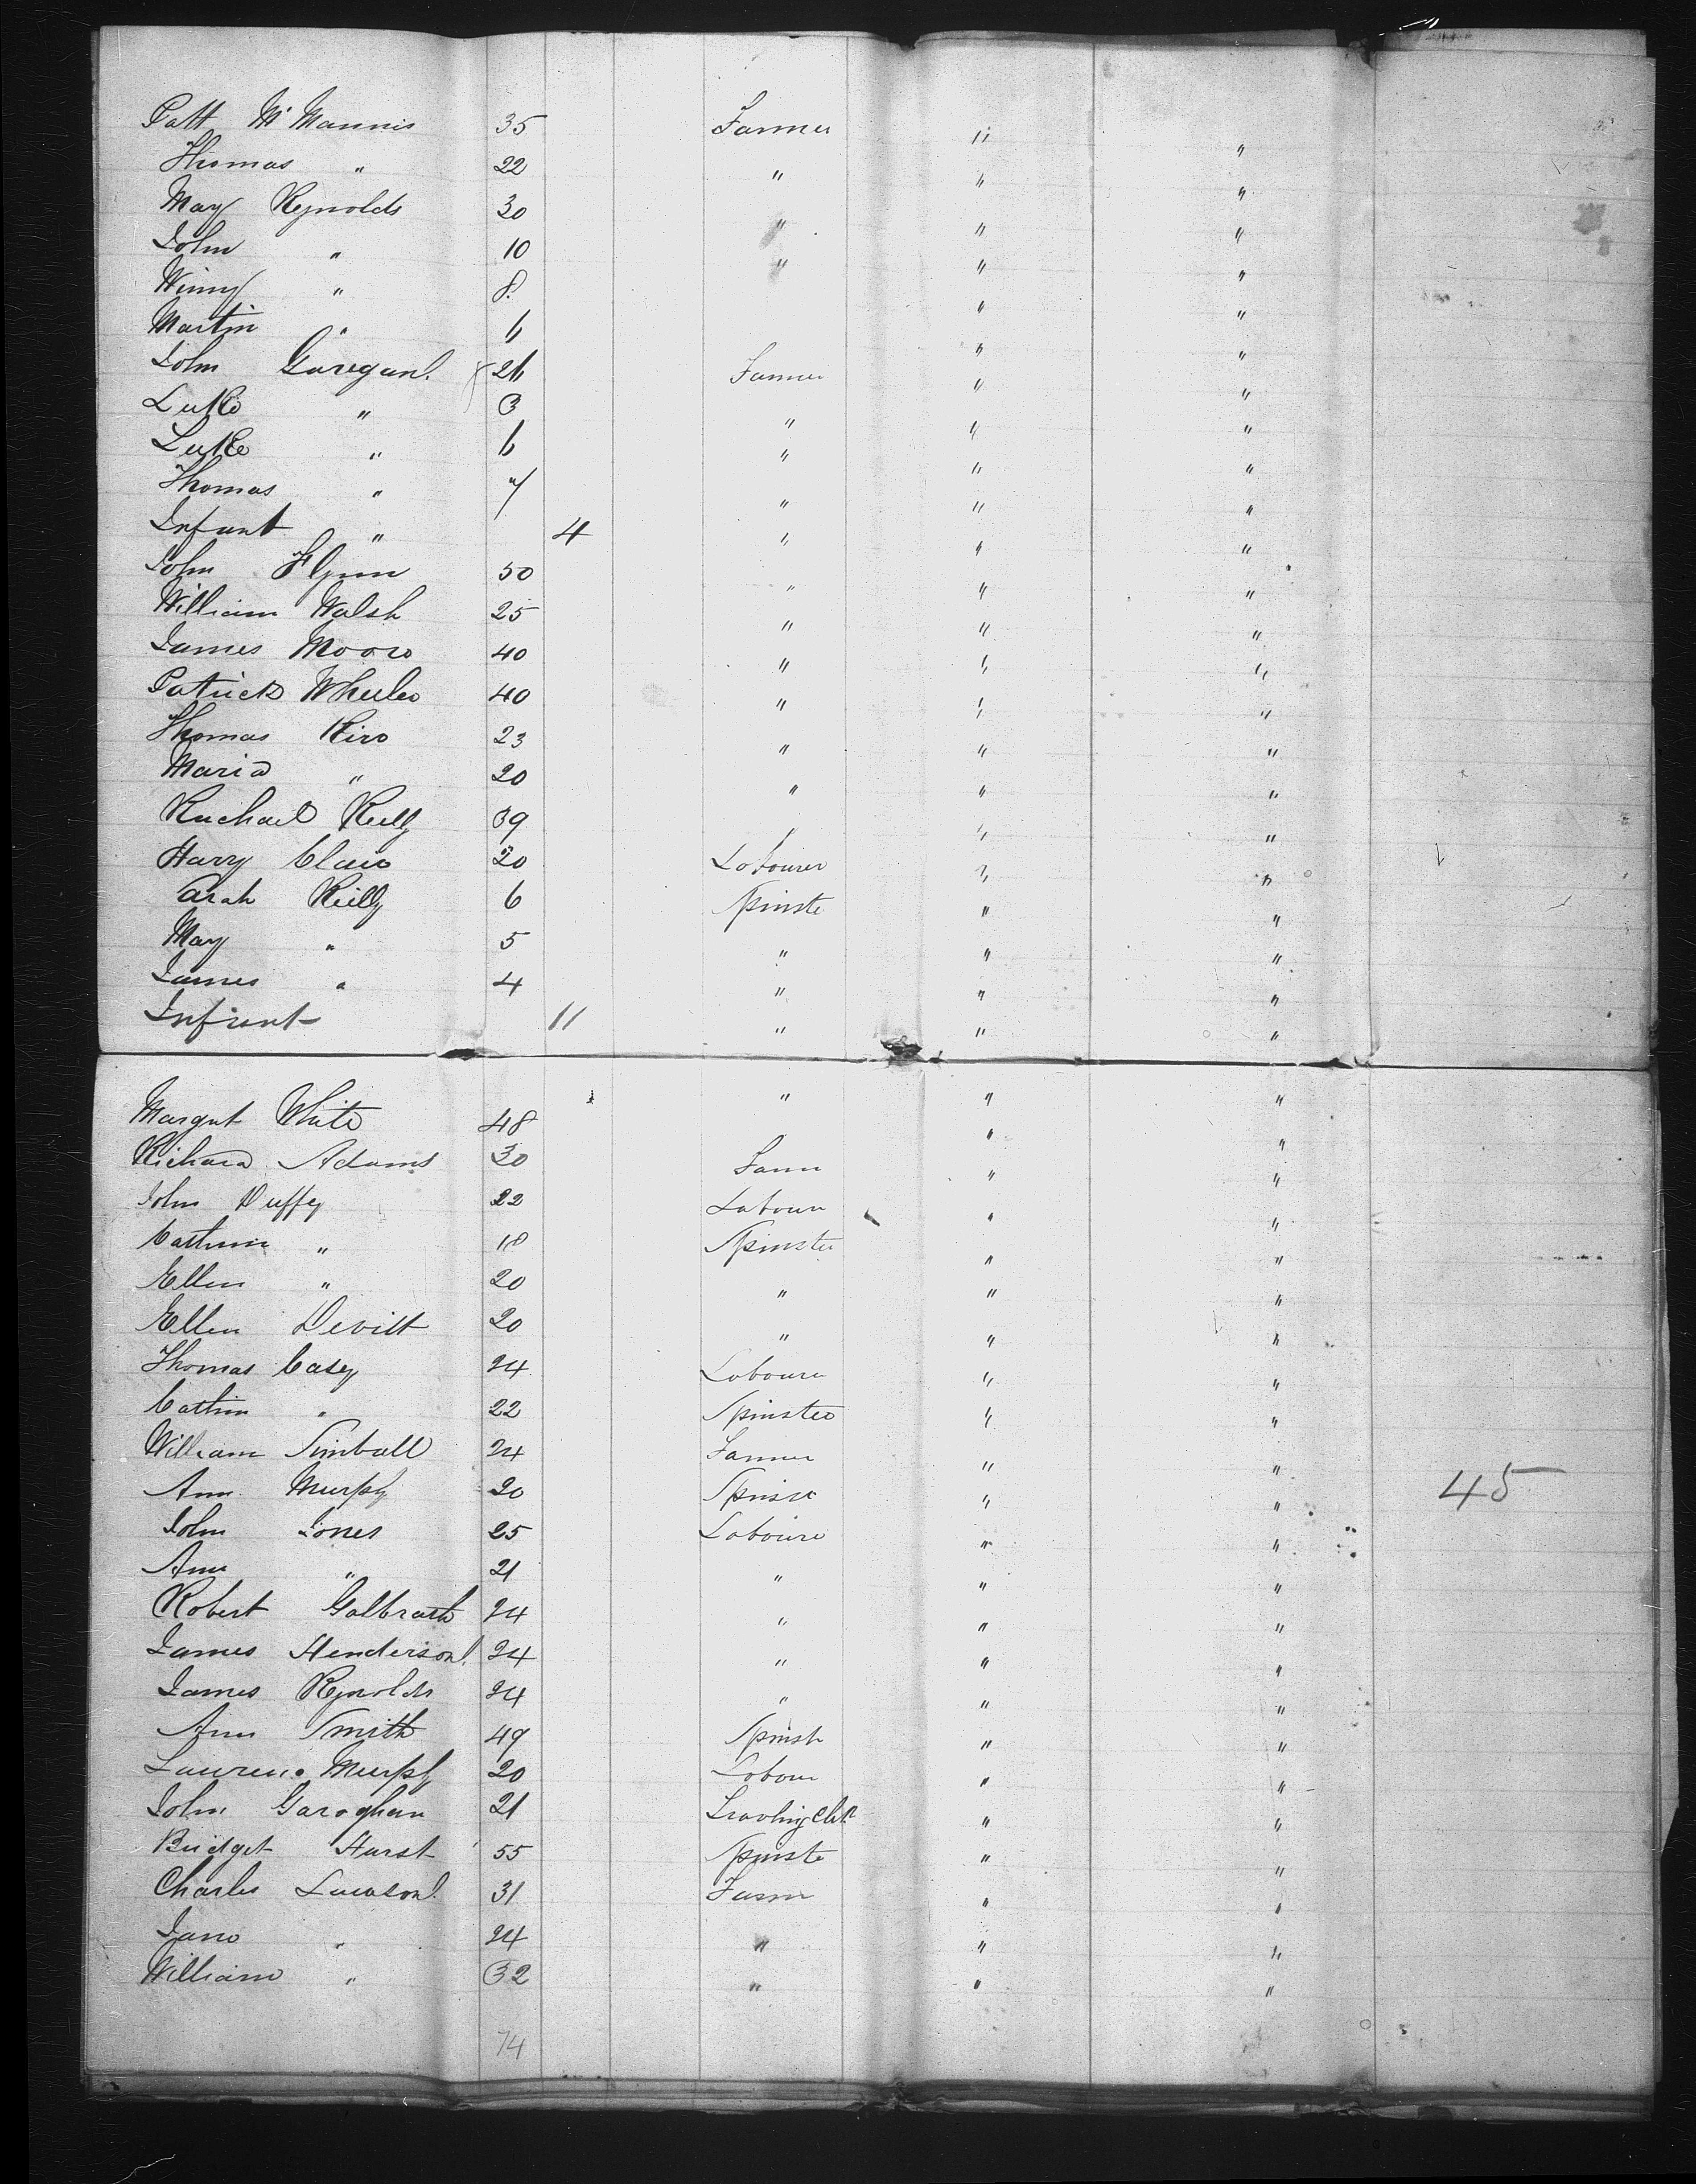 Patt Mc Mannis 35 Farmer " "
Thomas " 22 " " "
Mary Reynolds 30 " " "
John " 10 " " "
Winny " 8. " "
Martin " 6 " "
John Garegan 26 Farmer " "
Luke " 3 " " "
Luke " 6 " " "
Thomas " 7 " " "
Infant " 4 " " "
John Flynn 50 " " "
William Walsh 25 " " "
James Moore 40 " " "
Patrick Wheeler 40 " " "
Thomas 23 " " "
Maria " 20 " " "
Rachael Reily 39 " "
Harry 20 Labourer " "
Sarah Reilly 6 Spinste " "
Mary " 5 " " "
James " 4 " " "
Infant 11 " " "
Margret White 48 " " "
Richard Adams 30 Farmr " "
John Duffy 22 Labour " "
Cathrin " 18 Spinster " "
Ellen " 20 " " "
Ellen Devitt 20 " " "
Thomas Casey 24 Laboure " "
Cathrin " 22 Spinster " "
William Simball 24 Farmer " "
Ann Murphy 20 Spinst " "
45
John Jones 25 Laboure " "
Ann " 21 " " "
Robert Galbrath 24 " " "
James Henderson 24 " " "
James Reynolds 24 " " "
Ann Smith 49 Spinst " "
Lawrence Murphy 20 Labour " "
John Garoghan 21 " "
Bridget Hurst 55 Spinste " "
Charles Lawson 31 Farmr " "
Jane " 24 " " "
William " 32 " " "
74